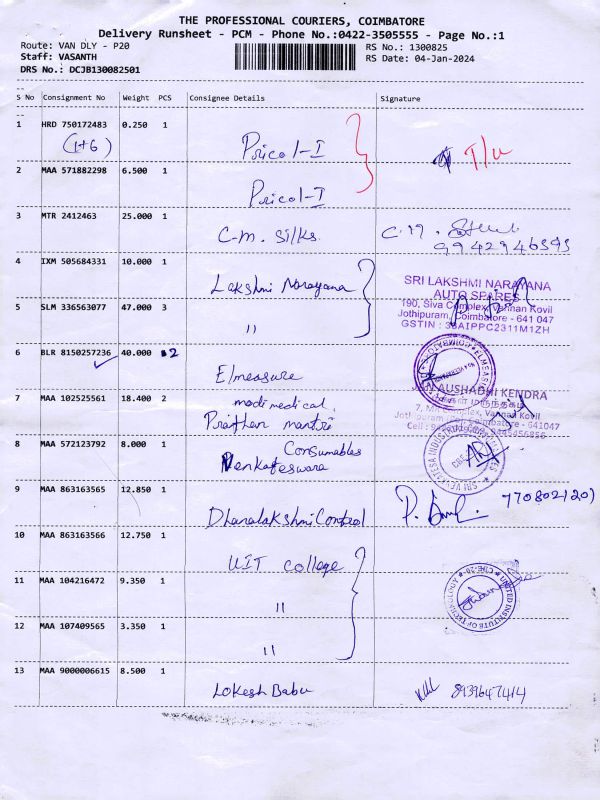 THE PROFESSIONAL COURIERS, COIMBATORE
Delivery Runsheet - PCM - Phone No.:0422-3505555 - Page No.:1
Route: VAN DLY - P20
RS No.: 1300825
Staff: VASANTH
RS Date: 04-Jan-2024
DRS No.: DCJB130082501
S No Consignment No Weight PCS Consignee Details Signature
1 HRD 750172483 0.250 1
(1+6) Pricol-I T/u
2 MAA 571882298 6.500 1
Pricol-I
3 MTR 2412463 25.000 1
C.M. Silks C.M. 9942946593
4 IXM 505684331 10.000 1
Lakshmi Narayana
SRI LAKSHMI NARAYANA
AUTO SPARES
190, Siva Complex, Vannan Kovil
Jothipuram, Coimbatore - 641 047
GSTIN : 33AIPPC2311M1ZH
5 SLM 336563077 47.000 3
"
6 BLR 8150257236 40.000 2
Elmeasure
7 MAA 102525561 18.400 2
modi medical
Prathan mantri
AUSHADHI KENDRA
மருந்தகம்
7, Complex, Vannan Kovil
Coimbatore - 641047
8 MAA 572123792 8.000 1
Consumables
Venkateswara
9 MAA 863163565 12.850 1
Dhanalakshmi Control P.
10 MAA 863163566 12.750 1
UIT College
11 MAA 104216472 9.350 1
"
UNITED INSTITUTE OF TECHNOLOGY CBE-20
12 MAA 107409565 3.350 1
"
13 MAA 9000006615 8.500 1
Lokesh Babu 8939647414